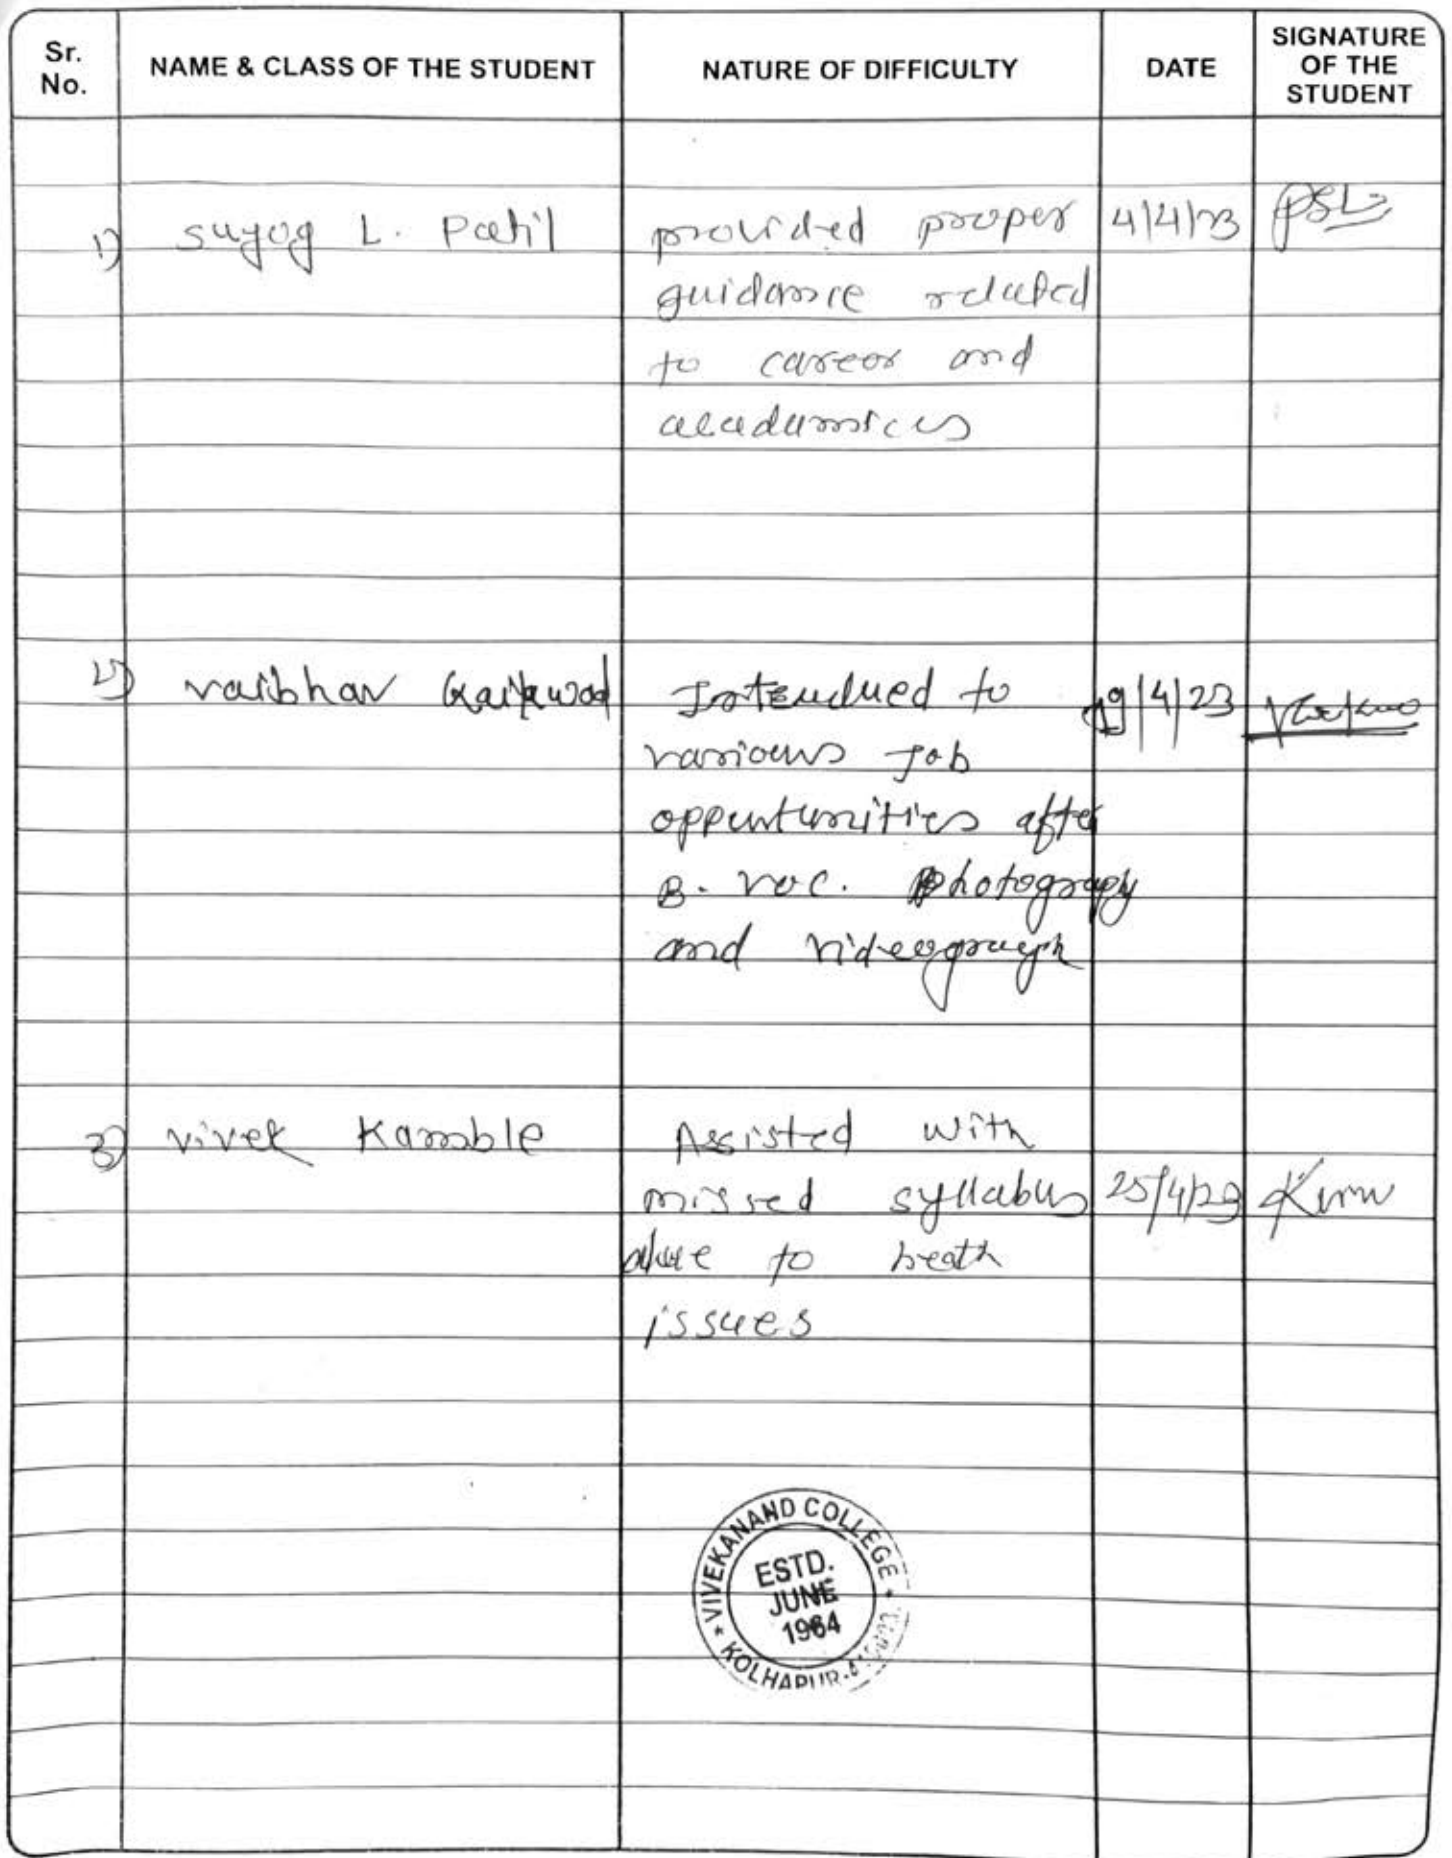 Sr. No. NAME & CLASS OF THE STUDENT NATURE OF DIFFICULTY DATE SIGNATURE OF THE STUDENT
1) suyog L. Patil provided proper 4/4/23 PSL
guidance related
to career and
acadamices
2) vaibhav Gaikwad Intenduued to 19/4/23
various Job
oppurtunities after
B. voc. photograpy
and videograph
3) vivek Kamble Assisted with
missed syllabus 25/4/23
due to heath
issues
VIVEKANAND COLLEGE
ESTD.
JUNE
1964
KOLHAPUR